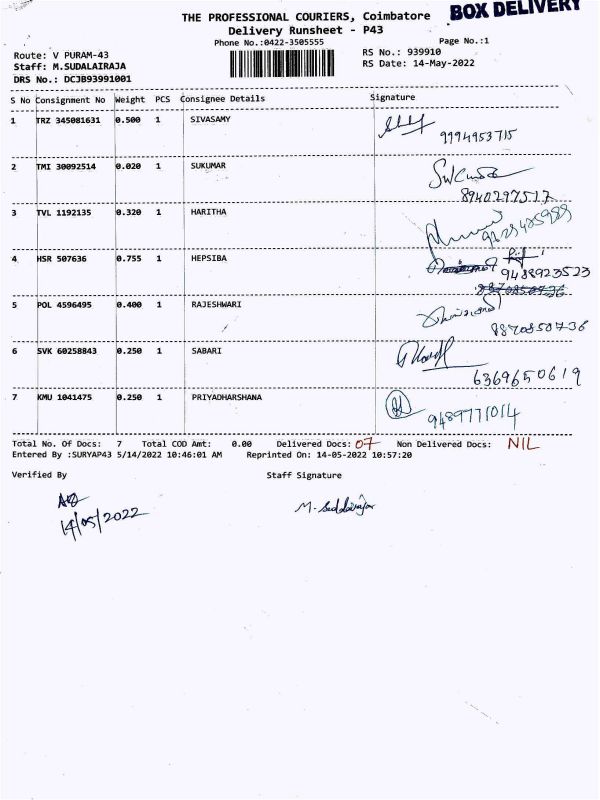 BOX DELIVERY
THE PROFESSIONAL COURIERS, Coimbatore
Delivery Runsheet - P43
Phone No.:0422-3505555
Page No.:1
Route: V PURAM-43
RS No.: 939910
Staff: M.SUDALAIRAJA
RS Date: 14-May-2022
DRS No.: DCJB93991001
S No Consignment No Weight PCS Consignee Details Signature
1 TRZ 345081631 0.500 1 SIVASAMY
9994953715
2 TMI 30092514 0.020 1 SUKUMAR
8940297517
3 TVL 1192135 0.320 1 HARITHA
4 HSR 507636 0.755 1 HEPSIBA
9488923523
8870850736
5 POL 4596495 0.400 1 RAJESHWARI
8870850736
6 SVK 60258843 0.250 1 SABARI
6369650619
7 KMU 1041475 0.250 1 PRIYADHARSHANA
9489771014
Total No. Of Docs: 7 Total COD Amt: 0.00 Delivered Docs: 07 Non Delivered Docs: NIL
Entered By :SURYAP43 5/14/2022 10:46:01 AM Reprinted On: 14-05-2022 10:57:20
Verified By Staff Signature
14/05/2022
M. Sudalairaja